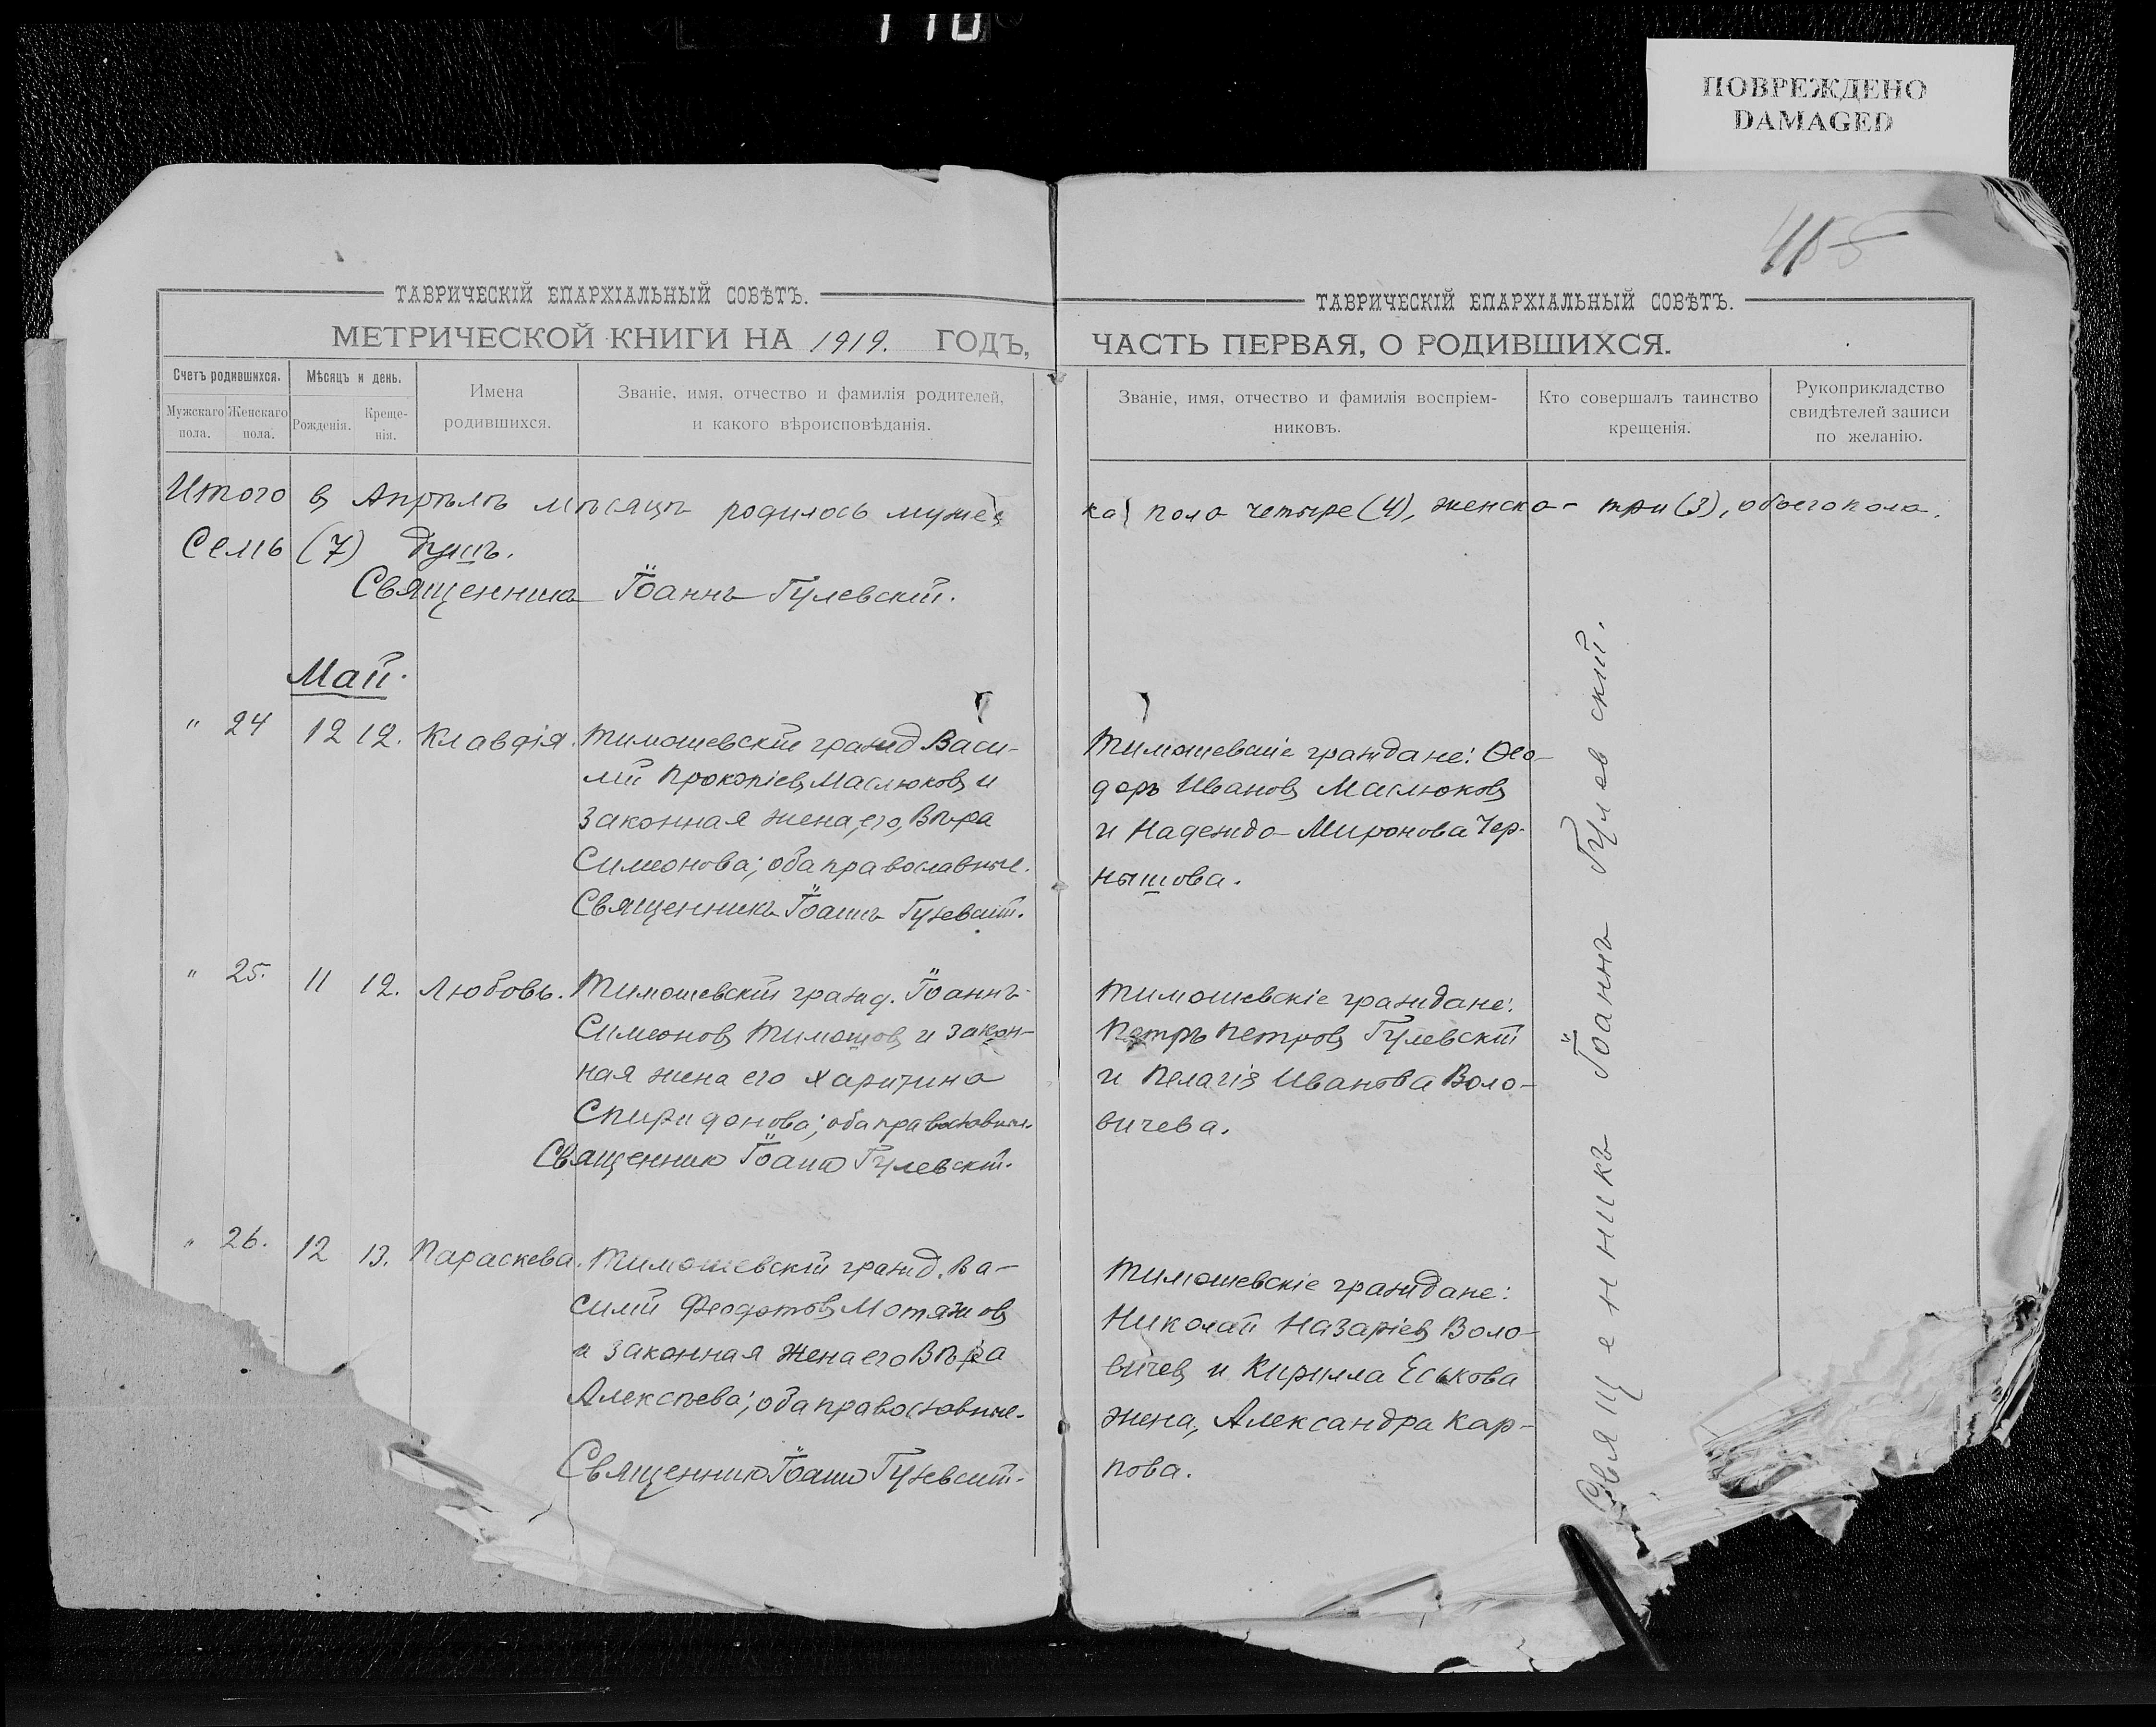 110
ПОВРЕЖДЕНО
DAMAGED
ТАВРИЧЕСКІЙ ЕПАРХІАЛЬНЫЙ СОВѢТЪ.
МЕТРИЧЕСКОЙ КНИГИ НА 1919. ГОДЪ,
Счетъ родившихся.
Мужскаго пола.
Женскаго пола.
Мѣсяцъ и день.
Рожденія.
Креще-
нія.
Имена
родившихся.
Званіе, имя, отчество и фамилія родителей,
и какого вѣроисповѣданія.
ТАВРИЧЕСКІЙ ЕПАРХІАЛЬНЫЙ СОВѢТЪ.
ЧАСТЬ ПЕРВАЯ, О РОДИВШИХСЯ.
Званіе, имя, отчество и фамилія воспріем-
никовъ.
Кто совершалъ таинство
крещенія.
Рукоприкладство
свидѣтелей записи
по желанію.
Итого въ Апрѣлѣ мѣсяцѣ родилось мужес
ка пола четыре (4), женска- три (3), обоего пола.
Семь (7) душъ.
Священникъ Іоаннъ Гулевскій.
Май.
" 24 12 12. Клавдія. Тимошевскій гражд Васи-
лій Прокопіевъ Маслюковъ и
законная жена, его, Вѣра
Симеонова; оба православные.
Священникъ Іоаннъ Гулевскій.
Тимошевскіе граждане: Ѳео-
доръ Ивановъ Маслюковъ
и Надежда Миронова Чер-
нышова.
" 25. 11 12. Любовь. Тимошевскій гражд. Іоаннъ
Симеоновъ Тимошовъ и закон-
ная жена его Харитина
Спиридонова; оба православные.
Священникъ Іоаннъ Гулевскій.
Тимошевскіе граждане:
Петръ Петровъ Гулевскій
и Пелагія Иванова Воло-
вичева.
" 26. 12 13. Параскева. Тимошевскій гражд. Ва-
силій Феодотовъ Мотяжовъ
и законная жена его Вѣра
Алексѣева; оба православные.
Священникъ Іоаннъ Гулевскій.
Тимошевскіе граждане:
Николай Назаріевъ Воло-
вичевъ и Кирилла Еськова
жена, Александра Кар-
пова.
Священникъ Іоаннъ Гулевскій.